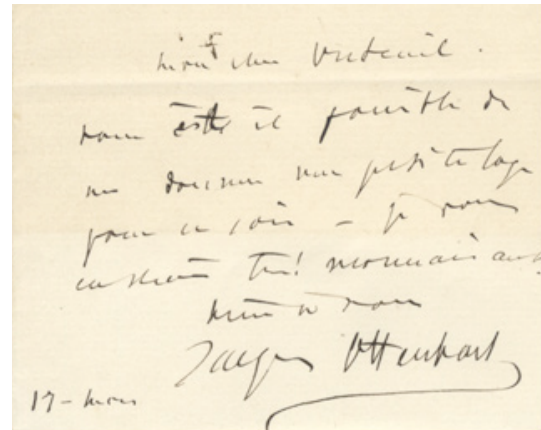 mon cher Vizteuil.
vous est il possible de
me donner une petite loge
pour ce soir – je vous
en serai très! reconnaissant
mille à vous
Jacques Offenbach
17 – mars